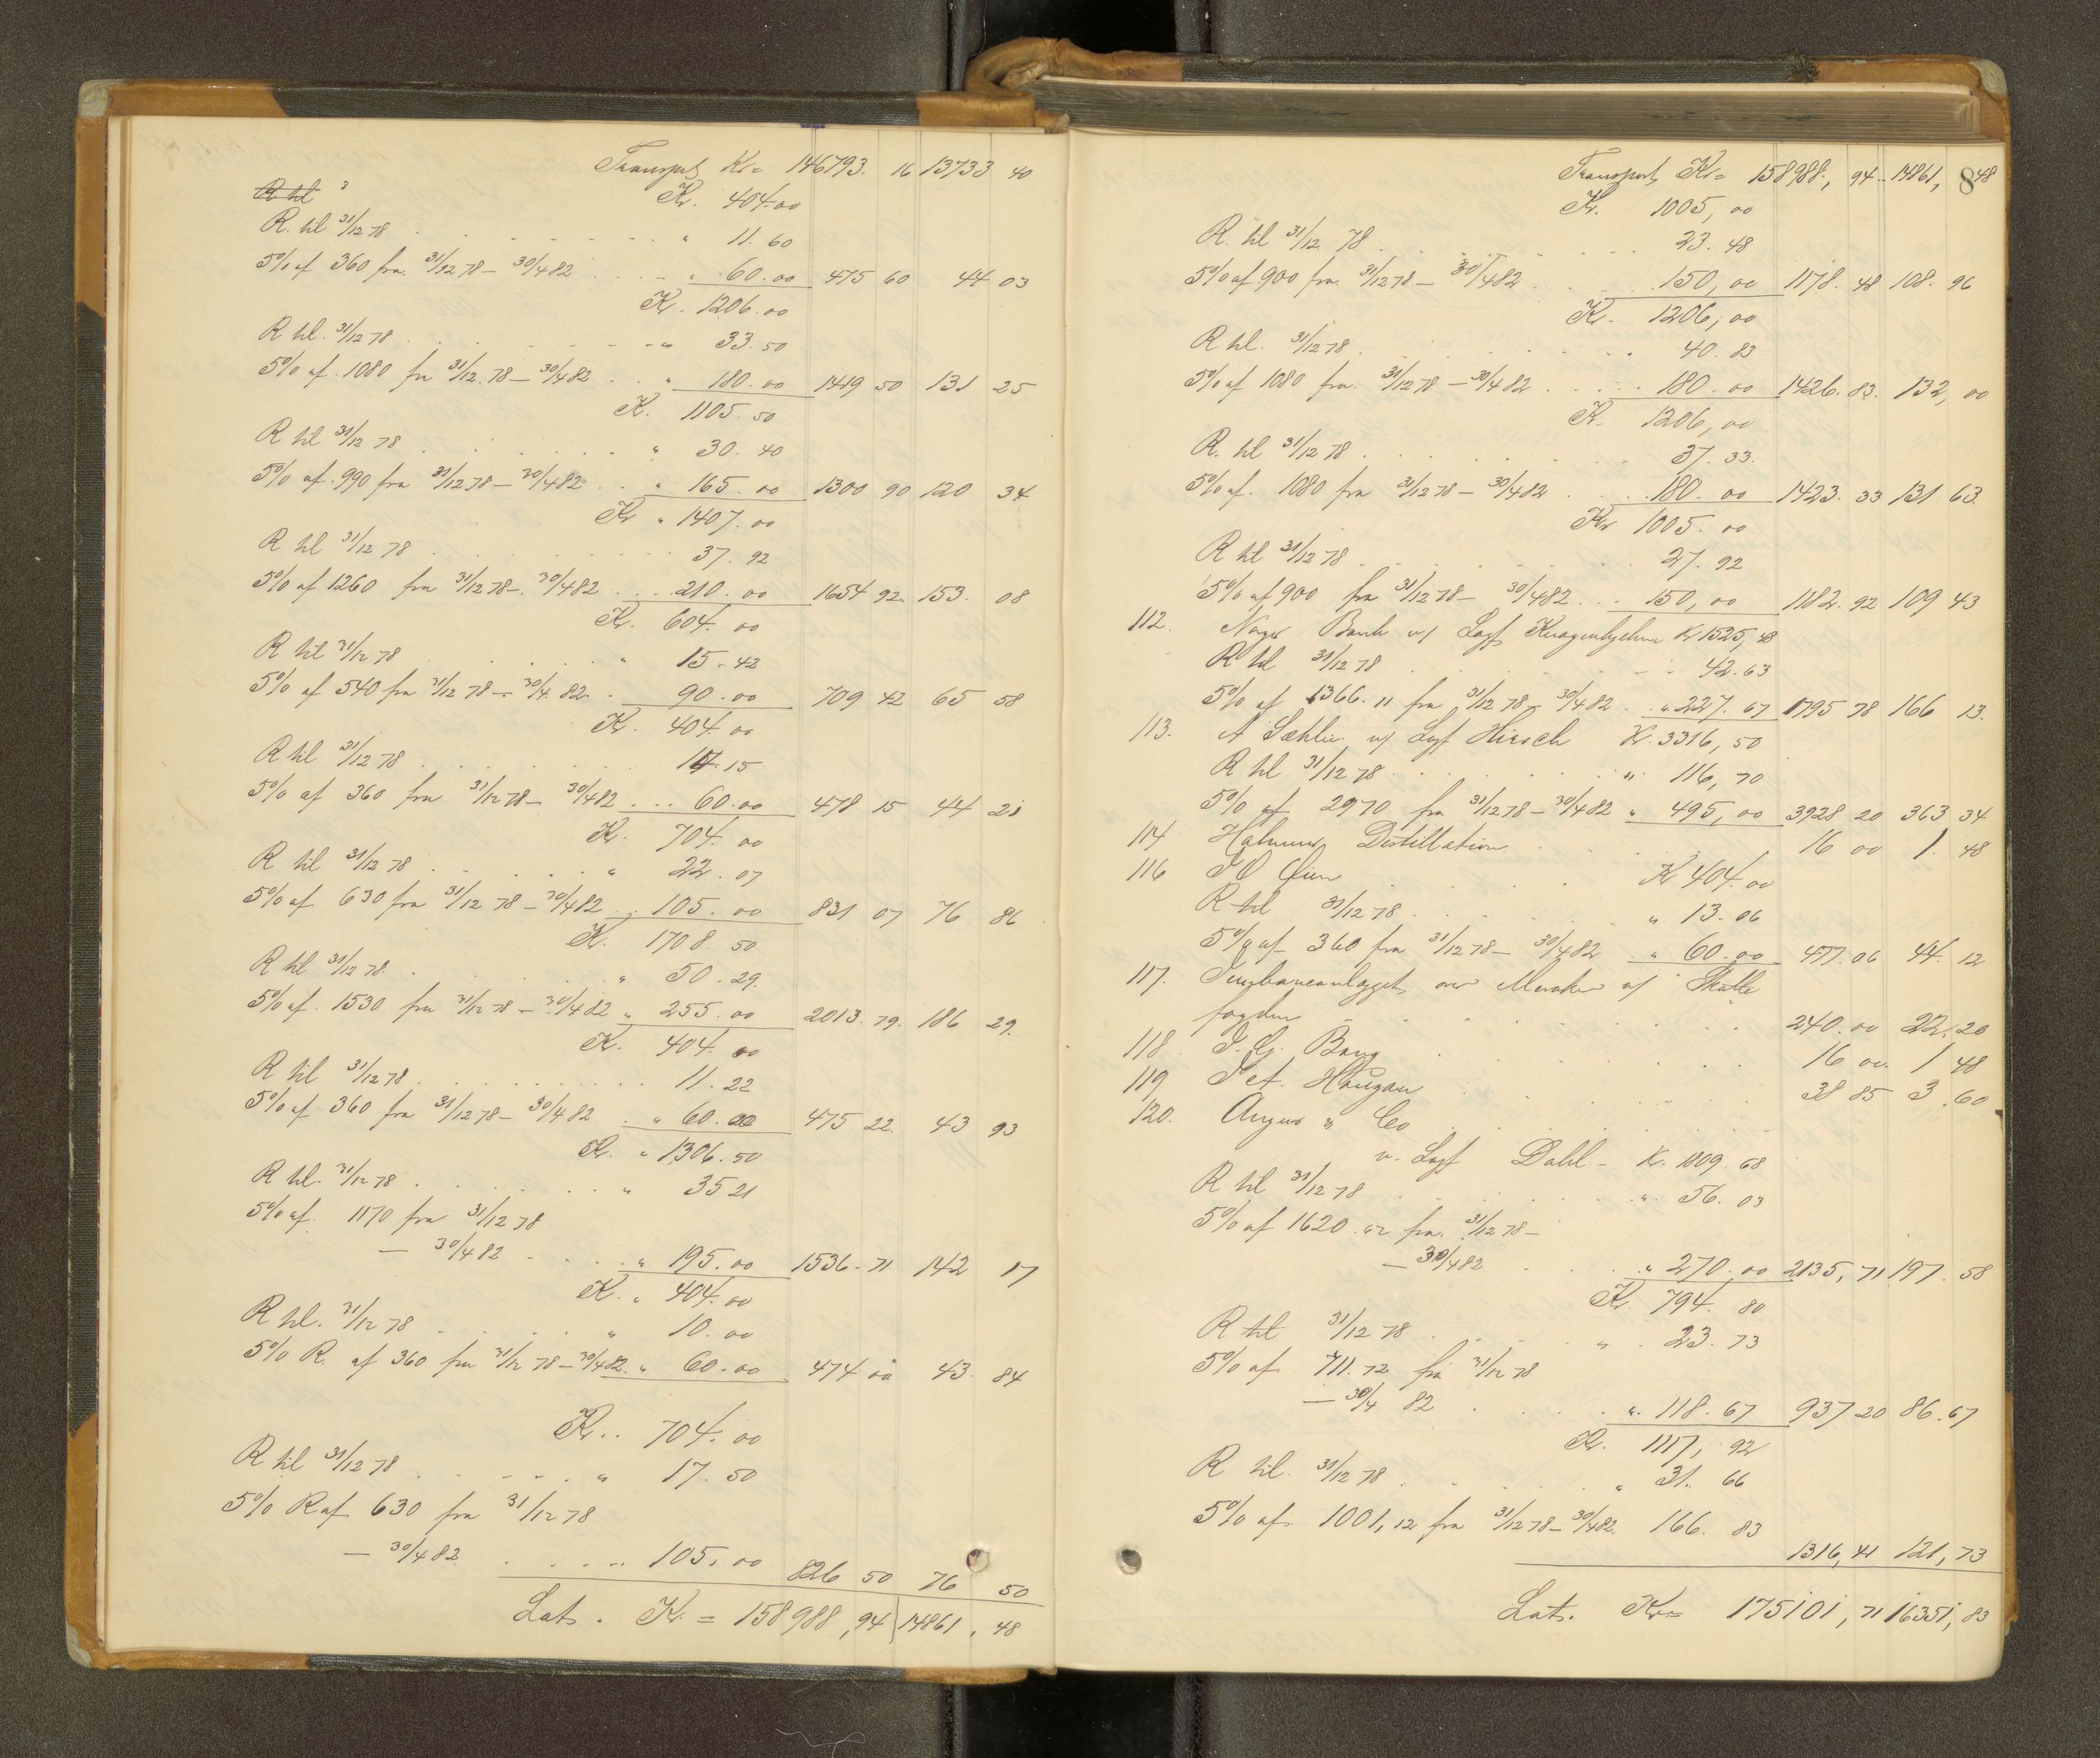 Transport Kr = 146793. 16 13733 40
R til
Kr. 404.00
R. til 31/12 78 . . . . . . . " 11. 60
5% af 360 fra 31/12 78 – 30/4 82 . . . " 60.00 475 60 44 03
Kr. 1206.00
R til. 31/12 78 . . . . . . " 33.50
5% af. 1080 fra 31/12. 78 – 30/4 82 . . " 180.00 1419 50 131 25
Kr. 1105. 50
R til 31/12 78 . . . . . . " 30. 40
5% af. 990 fra 31/12 78 – 30/4 82 . . " 165.00 1300 90 120 34
Kr " 1407.00
R til 31/12 78 . . . . . . . 37. 92
5% af 1260 fra 31/12 78 –. 30/4 82 . . . 210.00 1654 92. 153. 08
Kr. 604. 00
R til 31/12 78 . . . . " 15. 42
5% af 540 fra 31/12 78 – 30/4. 82. . 90.00 709 42 65 58
Kr. 404. 00
R til 31/12 78 . . . . . . 14.15
5% af 360 fra 31/12 78 – 30/4 82 . . . 60.00 478 15 44 21
Kr. 704. 00
R til 31/12 78 . . . . . " 22. 07
5% af 630 fra 31/12 78 – 30/4 82 . . 105.00 831 07 76 86
Kr. 1708. 50
R til 31/12 78. . . . . " 50. 29.
5% af. 1530 fra 31/12 78 – 30/4 82 " 255.00 2013. 79. 186 29.
Kr. 404. 00
R til 31/12 78 . . . . . . . . . 11. 22
5% af 360 fra 31/12 78 – 30/4 82 . " 60.00 475 22. 43 93
Kr. " 1306. 50
R til. 31/12 78 . . . . . . " 35 21
5% af. 1170 fra 31/12 78
– 30/4 82 . . . . " 195.00 1536. 71 142 17
Kr. " 404.00
R til. 31/12 78 . . . . . " 10.00
5% R. af 360 fra 31/12 78 – 30/4 82. " 60.00 474 00 43. 84
Kr. . 704. 00
R til 31/12 78 . . . . . " 17. 50
5% R af 630 fra 31/12 78
– 30/4 82 . . . . . . 105.00 826 50 76 50
Lats. Kr. = 158988, 94 14861, 48
8
Transport, Kr = 158988., 94. 14861, 48
Kr. 1005, 00
R. til 31/12 78 . . . . . . . 23. 48
5% af 900 fra. 31/12 78 – 30/4 82 . . . . 150, 00 1178. 48 108. 96
Kr. 1206, 00
R til. 31/12 78 . . . . . . . 40. 83
5% af 1080 fra. 31/12 78 – 30/4 82 . . . . 180. 00 1426. 83. 132, 00
Kr. 1206, 00
R. til 31/12 78 . . . . . . . 37. 33.
5% af. 1080 fra 31/12 78 – 30/4 82 . . . 180. 00 1423. 33 131 63.
Kr 1005. 00
R til 31/12 78 . . . . . . . 27. 92
5% af 900 fra 31/12 78 – 30/4 82 . . . 150, 00 1182. 92 109 43
112. Norges Bank v/ Lagf Kr 1525, 48
R til 31/12 78 . . . . . . . 42. 63
5% af 1366. 11 fra 31/12 78 – 30/4 82 . . " 227. 67 1795 78 166 13.
113. A v/ Lagf Hirsch Kr. 3316, 50
R til 31/12 78 . . . . . . " 116, 70
5% af 2970 fra 31/12 78 – 30/4 82 " 495, 00 3928 20 363 34
114 Distillation . . . . . 16 00 1. 48
116 . . . Kr 404. 00
R til 31/12 78 . . . . . . " 13. 06
5% af 360 fra 31/12 78 – 30/4 82 . " 60.00 477. 06 44. 12
117. Jernbaneanlægget over Meraker v/ Skatte
fogden . . . . . . . . 240. 00 22. 20
118 . . . . . . . 16 00. 1 48
119 Pet. Haugan . . . . . . . 38 85 3. 60
120. " Co . . . . . . . .
v. Lagf Dahl – Kr. 1809. 68
R til 31/12 78 . . . . . . . " 56. 03
5% af 1620. fra. 31/12 78 –
– 30/4 82 . . . . " 270. 00 2135, 71 197. 58
Kr. 794. 80
R til 31/12 78 . . . . . " 23. 73
5% af 711. 72 fra 31/12 78
– 30/4 82 . . . . . ". 118. 67 937 20 86. 67
Kr. 1117, 92
R til. 31/12 78 . . . . . " 31. 66
5% af 1001, 12 fra 31/12 78 – 30/4 82. 166. 83
1316, 41 121, 73
Lats. Kr = 175101, 71 16351, 83